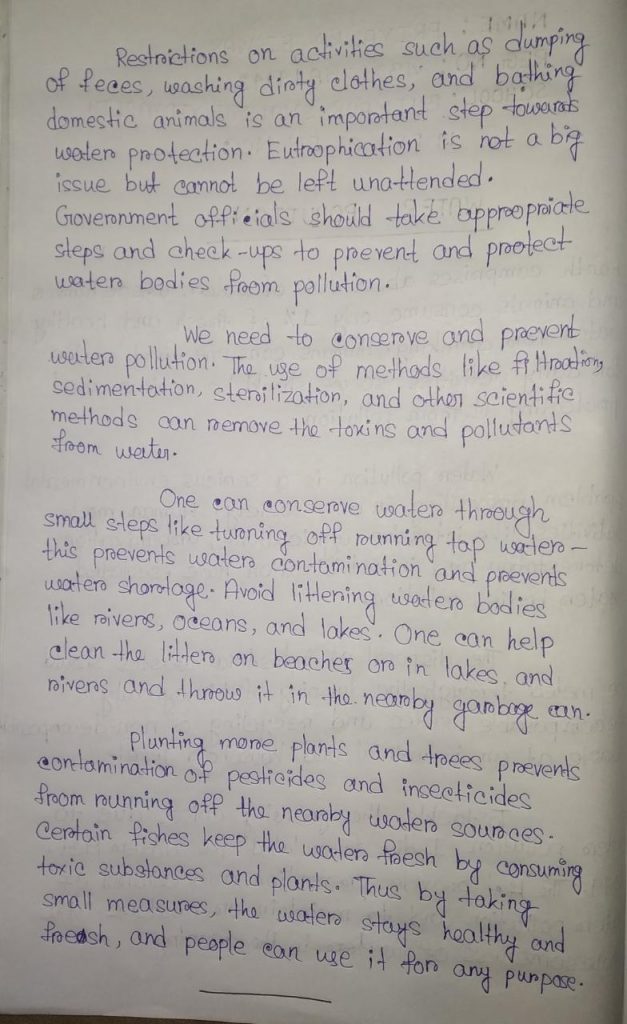 Restrictions on activities such as dumping
of feces, washing dirty clothes, and bathing
domestic animals is an important step towards
water protection. Eutrophication is not a big
issue but cannot be left unattended.
Government officials should take appropriate
steps and check-ups to prevent and protect
water bodies from pollution.
We need to conserve and prevent
water pollution. The use of methods like filtration,
sedimentation, sterilization, and other scientific
methods can remove the toxins and pollutants
from water.
One can conserve water through
small steps like turning off running tap water –
this prevents water contamination and prevents
water shortage. Avoid littering water bodies
like rivers, oceans, and lakes. One can help
clean the litter on beaches or in lakes, and
rivers and throw it in the nearby garbage can.
Plunting more plants and trees prevents
contamination of pesticides and insecticides
from running off the nearby water sources.
Certain fishes keep the water fresh by consuming
toxic substances and plants. Thus by taking
small measures, the water stays healthy and
freash, and people can use it for any purpose.